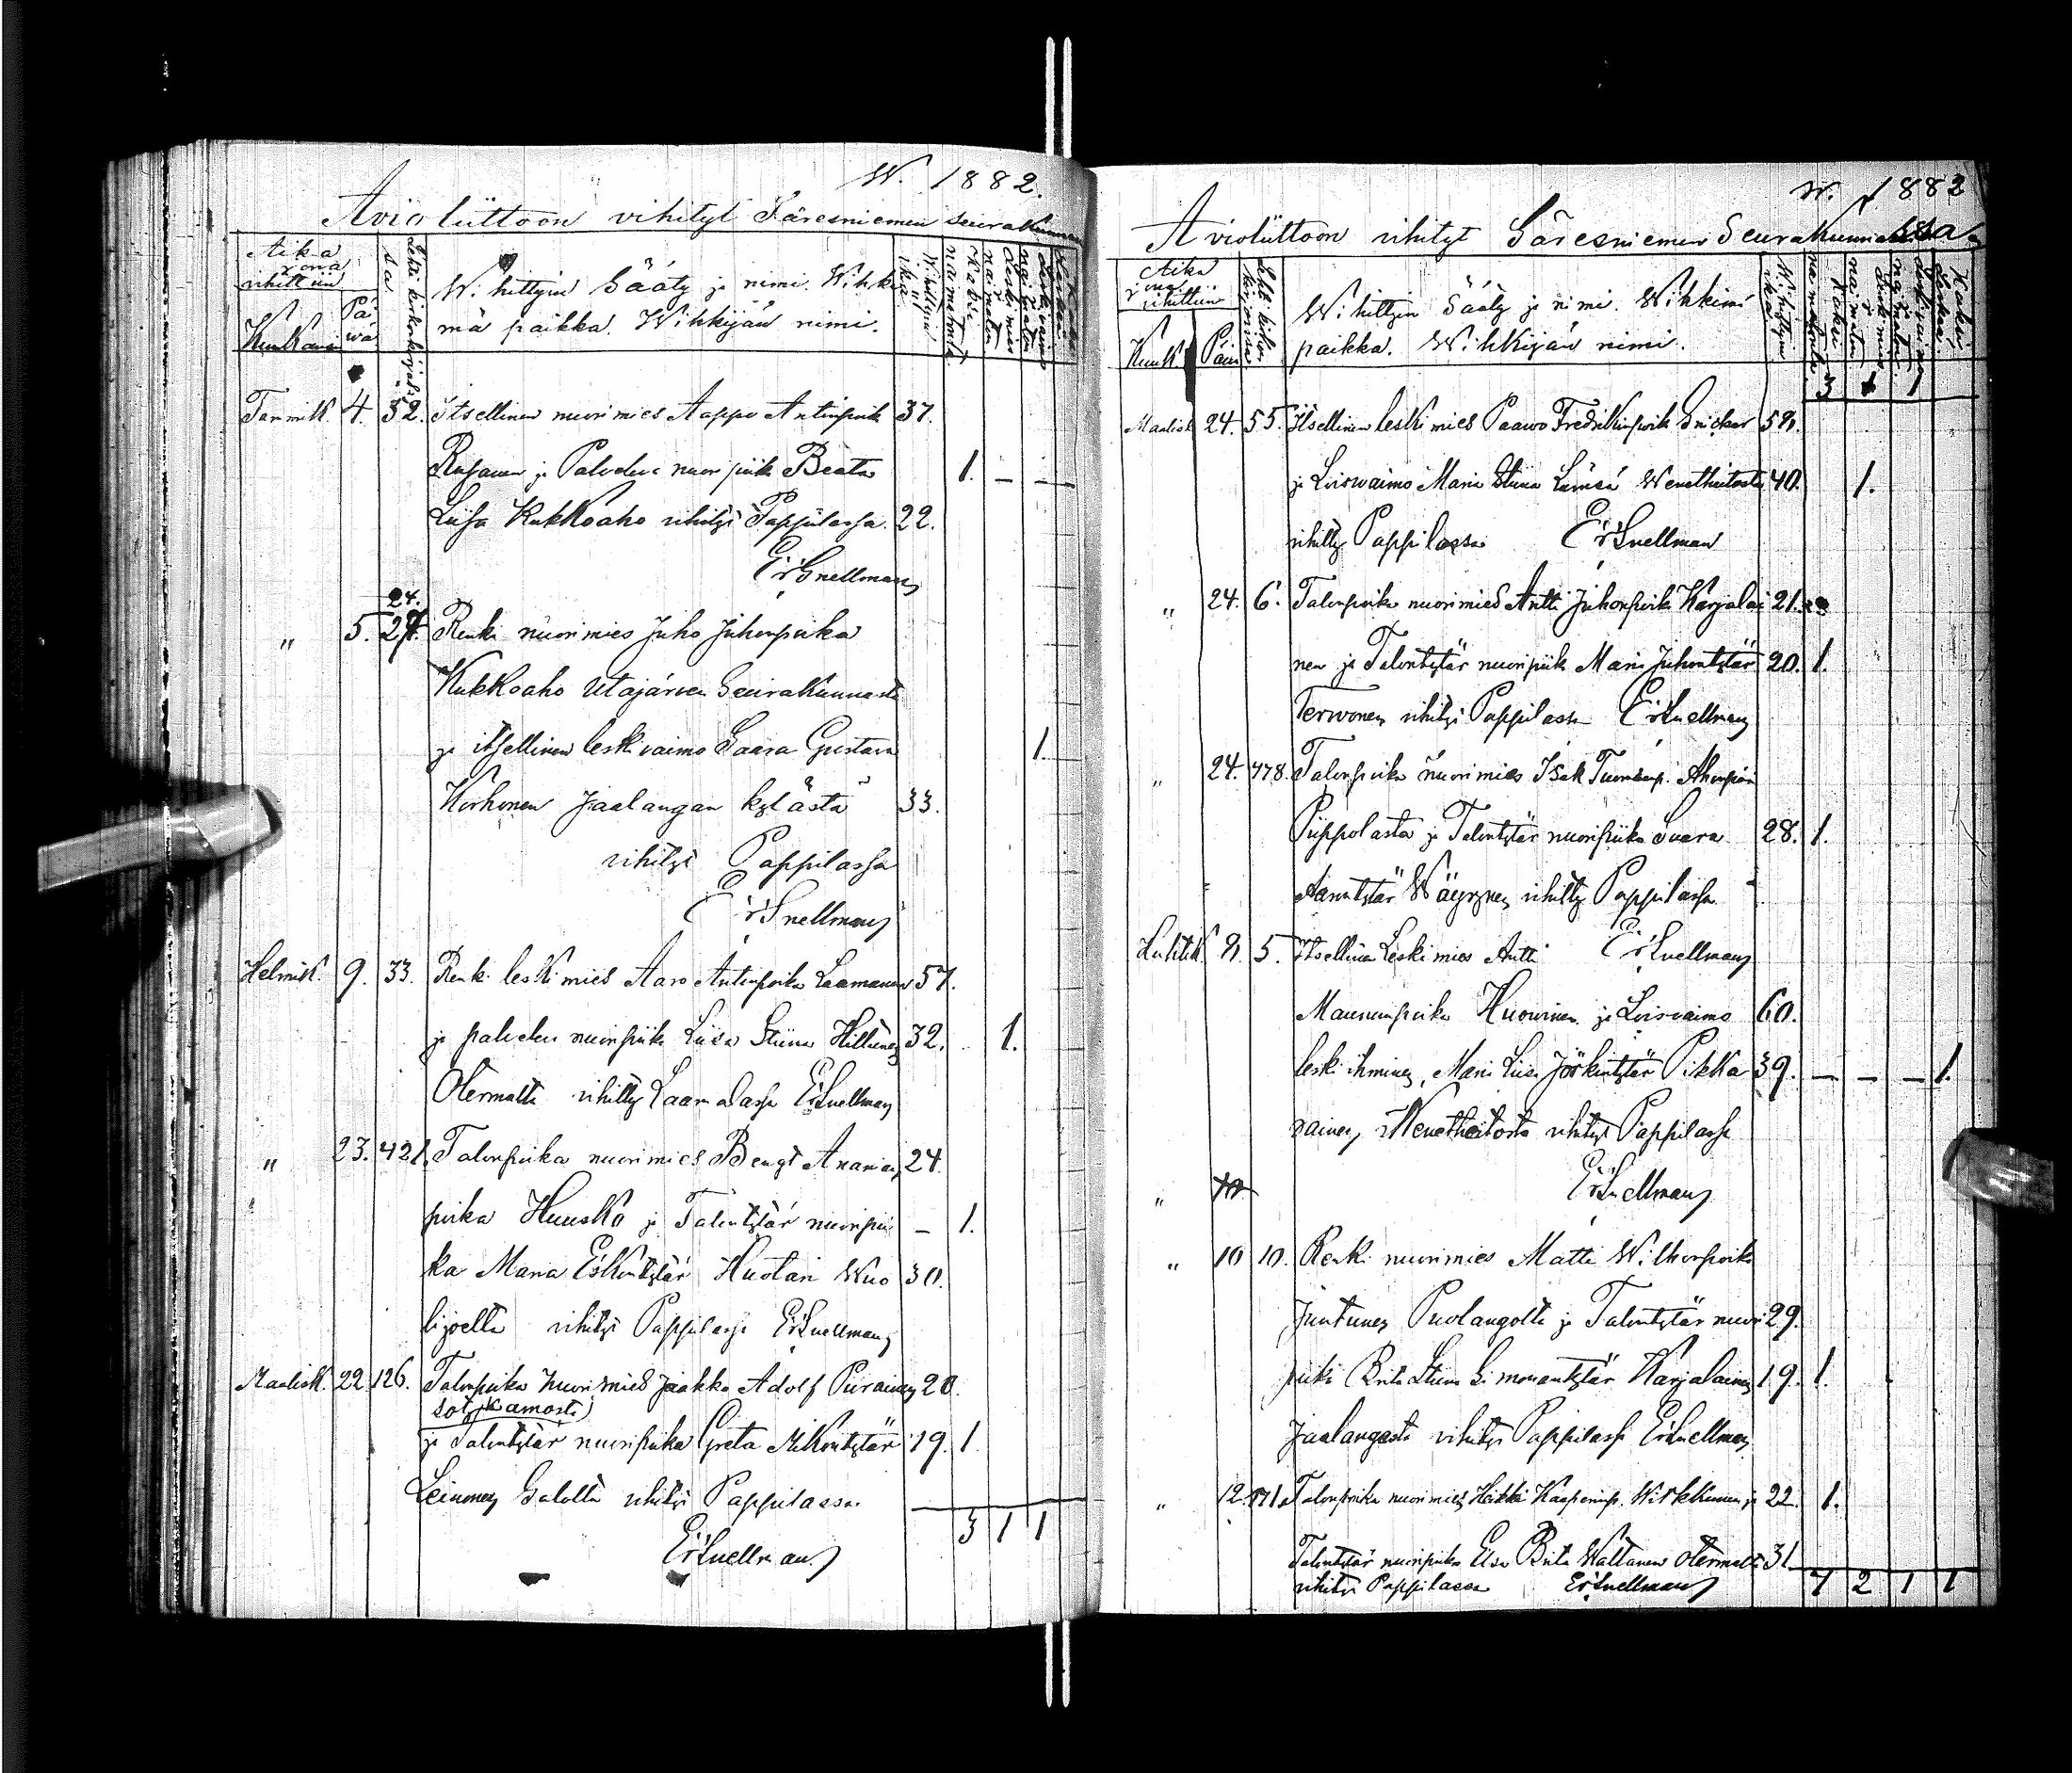 W. 1882.
Avioliittoon vihityt Säresniemen seurakunnan
Aika
jona
vihittiin
Kuukausi
Päi
wä
Lehti kirkonkirjas
sa.
Wihittyin Sääty ja nimi. Wihki
mä paikka. Wihkijän nimi.
Wihittyin
ikä.
Tammik. 4. 32. Itsellinen nuorimies Aappo Antinpoik 37.
ja Palvelus nuori piik Beata 1. — —
Liisa Kukkoaho vihityt Pappilassa. 22.
Er. Snellman
24.
" 5. 27. Renki nuorimies Juho Juhonpoika
Kukkoaho Utajärven Seurakunnasta
ja itsellinen leskivaimo Saara Gustava 1.
Korhonen Jaalangan kylästä 33.
vihityt Pappilassa
Er. Snellman
Helmik. 9. 33. Renki leskimies Aaro Antinpoika Laamanen 57.
ja palvelus nuoripiika Liisa Stiina Hiltunen 32. 1.
Otermalta vihitty Laamalassa Er. Snellman
" 23. 421. Talonpoika nuorimies Bengt Ananian 24.
poika Huusko ja Talontytär nuoripii — 1.
ka Maria Eskontytär Huotari Wuo 30.
lijoelta vihityt Pappilassa Er. Snellman
Maalisk. 22. 126. Talonpoika nuorimies Jaakko Adolf Piirainen 20.
Sotkamosta
ja Talontytär nuoripiika Greta Mikontytär 19. 1.
Leinonen Salolta vihityt Pappilassa.
3 1 1
Er. Snellman
W. 1882
Avioliittoon vihityt Säresniemen Seurakunnassa
Aika
jona
vihittiin
Kuuk. Päiv
Leht. kirkon
kirjoissa
Wihittyin Sääty ja nimi. Wihkimä
paikka. Wihkijän nimi.
Wihittyin
ikä
3 1 1
Maalisk 24. 55. Itsellinen leskimies Paavo Fredrikinpoik Snicker 58.
ja Loisvaimo Maria Stiina Lämsä Wenetheitosta 40. 1.
vihitty Pappilassa Er. Snellman
" 24. 6. Talonpoika nuorimies Antti Juhonpoik Karjalai 21.
nen ja Talontytär nuoripiik Maria Juhontytär 20. 1.
Tervonen vihityt Pappilassa Er. Snellman
" 24. 478. Talonpoika nuorimies Isak
Piippolasta ja Talontytär nuoripiika Saara 28. 1.
Aarontytär Wäyrynen vihitty Pappilassa
Huhtik. 8. 5. Itsellinen Leskimies Antti Er. Snellman
Maununpoika Huovinen ja Loisvaimo 60.
leski ihminen, Maria Liisa Yörkintytär Pikka 39. — — — 1.
rainen, Wenetheitosta vihityt Pappilassa
" Er. Snellman
" 10 10. Renki nuorimies Matti Wilhonpoika
Juntunen Puolangolta ja Talontytär nuori 29.
piika Brita Stiina Simonantytär Karjalainen 19. 1.
Jaalangasta vihityt Pappilassa Er. Snellman
" 12. 871 Talonpoika nuorimies Heikki Kaaperinp. Wirkkunen ja 22. 1.
Talontytär nuoripiika Elsa Brita Waltanen Otermalta 31
vihityt Pappilassa Er. Snellman 7 2 1 1